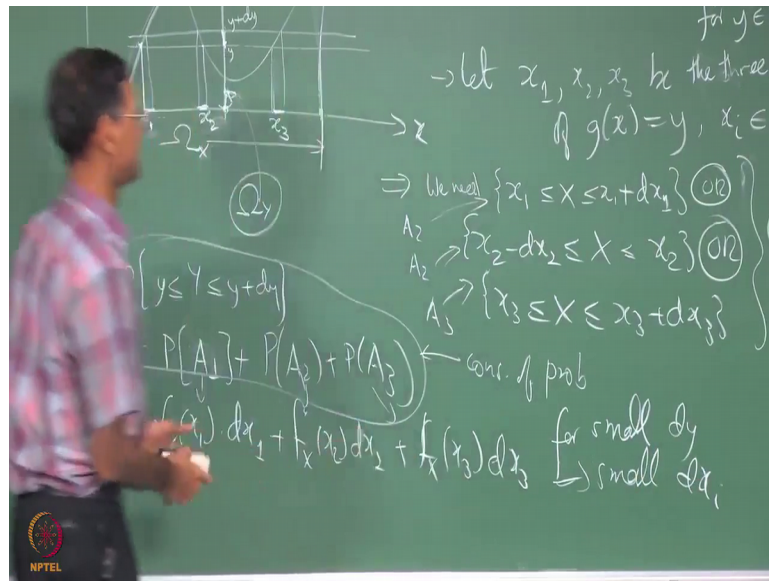 for y ∈
→ let x₁, x₂, x₃ be the three
of g(x) = y, xᵢ ∈
y+dy
y
x₂
x₃
x
Ωₓ
Ω_Y
⇒ We need {x₁ ≤ X ≤ x₁+dx₁} OR
A₂
A₂ {x₂-dx₂ ≤ X ≤ x₂} OR
A₃ {x₃ ≤ X ≤ x₃+dx₃}
{y ≤ Y ≤ y+dy}
P[A₁] + P(A₂) + P(A₃) ← cons. of prob
(x₁)·dx₁ + fₓ(x₂)dx₂ + fₓ(x₃)dx₃ for small dy
↳ small dxᵢ
NPTEL